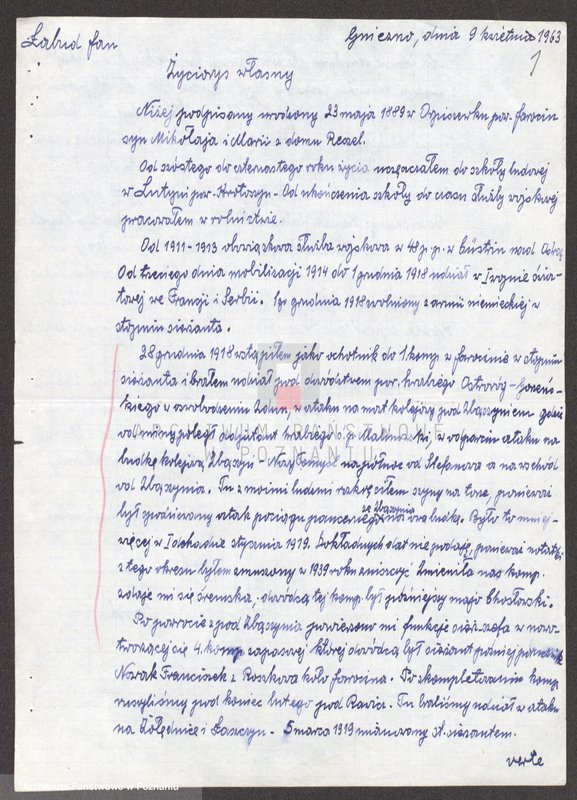 Łabud Jan
Gniezno, dnia 9 kwietnia 1963
1
Życiorys własny
Niżej podpisany urodzony 23 maja 1889 w pow. Jarocin
syn Mikołaja i Marii z domu
Od szóstego do czternastego roku życia uczęszczałem do szkoły ludowej
w Lutyni pow. Krotoszyn - Od ukończenia szkoły do czasu służby wojskowej
pracowałem w rolnictwie.
Od 1911-1913 obowiązkowa służba wojskowa w 48 p.p. w Cüstrin nad Odrą
Od trzeciego dnia mobilizacji 1914 do 1 grudnia 1918 udział w I wojnie świa-
towej we Francji i Serbii. 1go grudnia 1918 zwolniony z armii niemieckiej w
stopniu sierżanta.
28 grudnia 1918 wstąpiłem jako ochotnik do 1. komp. w Jarocinie w stopniu
sierżanta i brałem udział pod dowództwem por. hrabiego Ostroróg-Gorzeń-
skiego w oswobodzeniu Zdun, w ataku na most kolejowy pod Zbąszyniem gdzie
od miny poległ adjutant hrabiego ś.p. Malinowski, w odparciu ataku na
budkę kolejową Zbąszyń - na północ od Stefanowa a na wschód
od Zbąszynia. Tu z moimi ludźmi szyny na torze, ponieważ
był spodziewany atak pociągu pancernego ze Zbąszynia na ową budkę. Było to mniej-
więcej w I dekadzie stycznia 1919. Dokładnych dat nie podaję, ponieważ notatki
z tego okresu byłem zmuszony w 1939 roku zniszczyć. Zmieniła nas komp.
zdaje mi się śremska - dowódcą tej komp. był późniejszy major Chosłowski.
Po powrocie z pod Zbąszynia powierzono mi funkcję sierż. szefa w nowo-
tworzącej się 4. komp. zapasowej której dowódcą był sierżant później porucznik
Nowak Franciszek z Roszkowa koło Jarocina. Po skompletowaniu komp.
ruszyliśmy pod koniec lutego pod Rawicz. Tu braliśmy udział w ataku
na Żołędnicę i Łaszczyn - 5 marca 1919 mianowany st. sierżantem.
verte
ARCHIWUM PAŃSTWOWE
W POZNANIU
Państwowe w Poznaniu